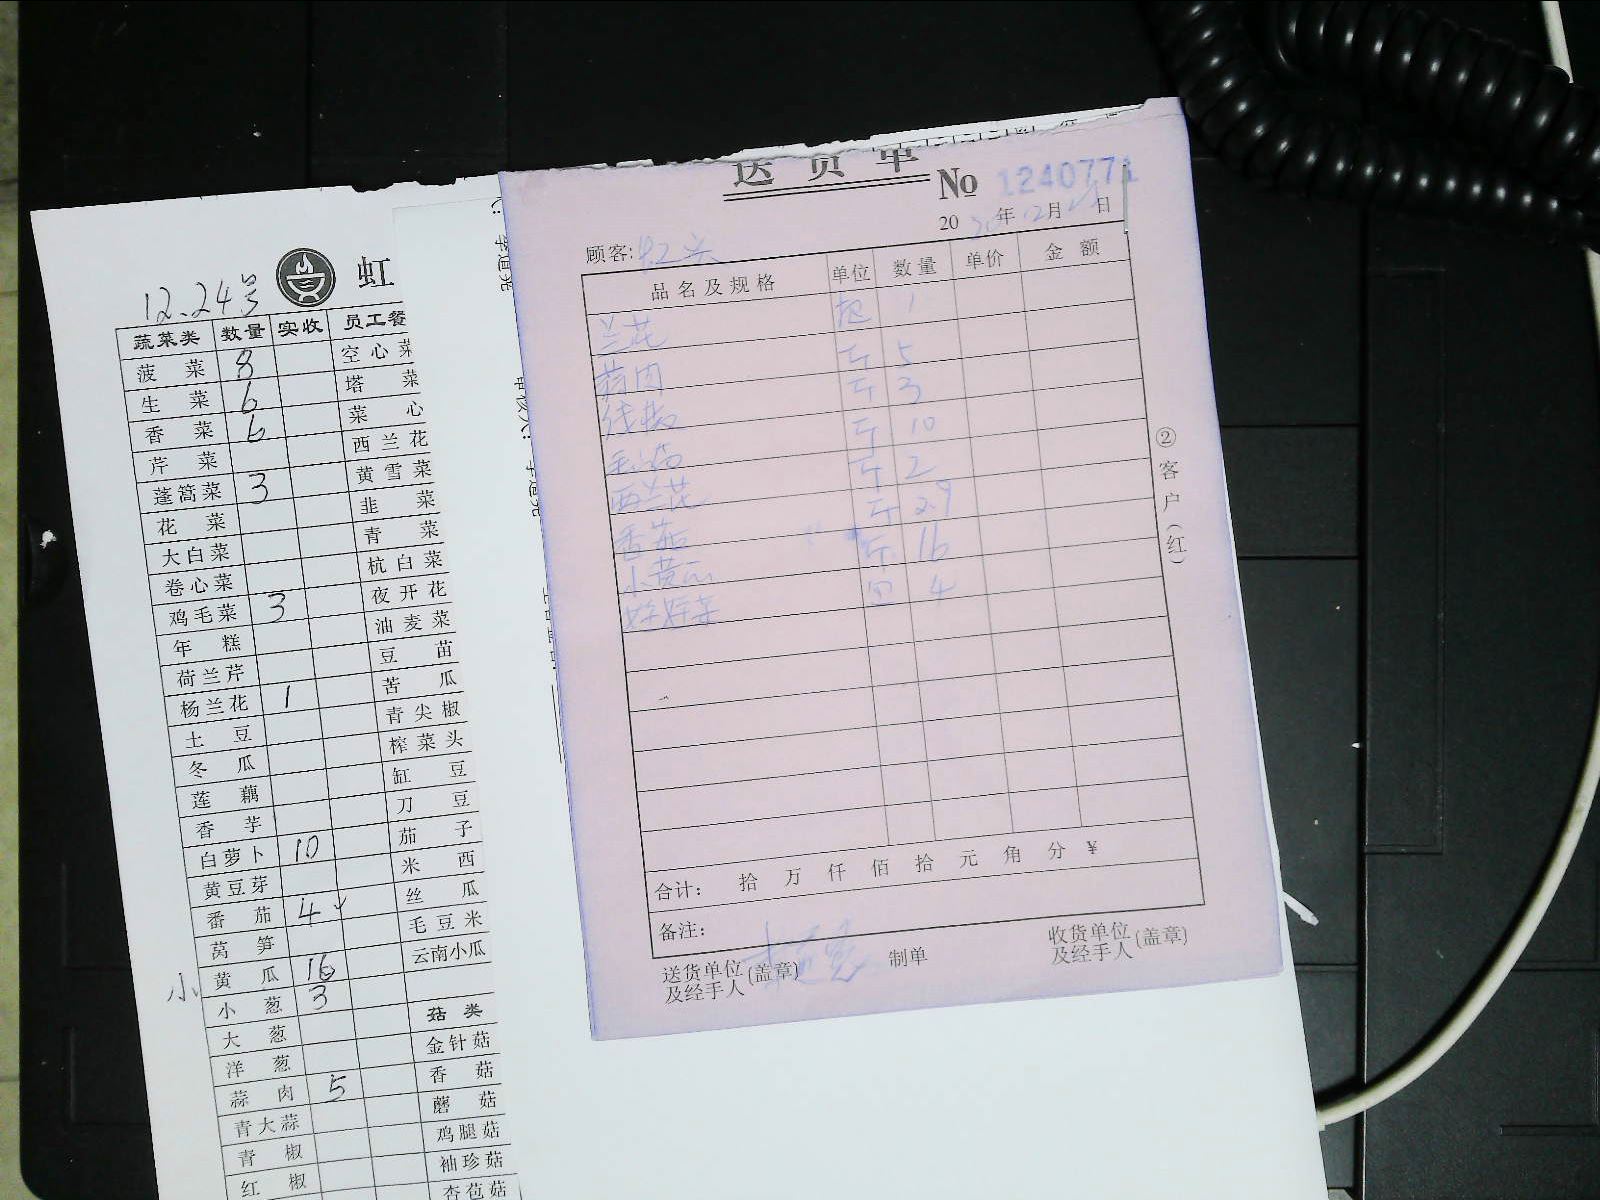 12.24号
虹
蔬菜类 数量 实收 员工餐
菠菜 8 空心菜
生菜 6 塔菜
香菜 6 菜心
芹菜 西兰花
蓬蒿菜 3 黄雪菜
花菜 韭菜
大白菜 青菜
卷心菜 杭白菜
鸡毛菜 3 夜开花
年糕 油麦菜
荷兰芹 豆苗
杨兰花 1 苦瓜
土豆 青尖椒
冬瓜 榨菜头
莲藕 缸豆
香芋 刀豆
白萝卜 10 茄子
黄豆芽 米西
番茄 4 丝瓜
莴笋 毛豆米
小 黄瓜 16 云南小瓜
小葱 3
大葱 菇类
洋葱 金针菇
蒜肉 5 香菇
青大蒜 蘑菇
青椒 鸡腿菇
红椒 袖珍菇
杏苞菇
送货单
No 1240771
20 20 年 12 月 24 日
顾客:
品名及规格 单位 数量 单价 金额
兰花 1
蒜肉 斤 5
线椒 斤 3
斤 10
西兰花 斤 2
番茄 斤 2.9
小黄瓜 斤 16
娃娃菜 包 4
合计: 拾 万 仟 佰 拾 元 角 分 ¥
备注:
送货单位及经手人(盖章) 制单 收货单位及经手人(盖章)
②客户(红)